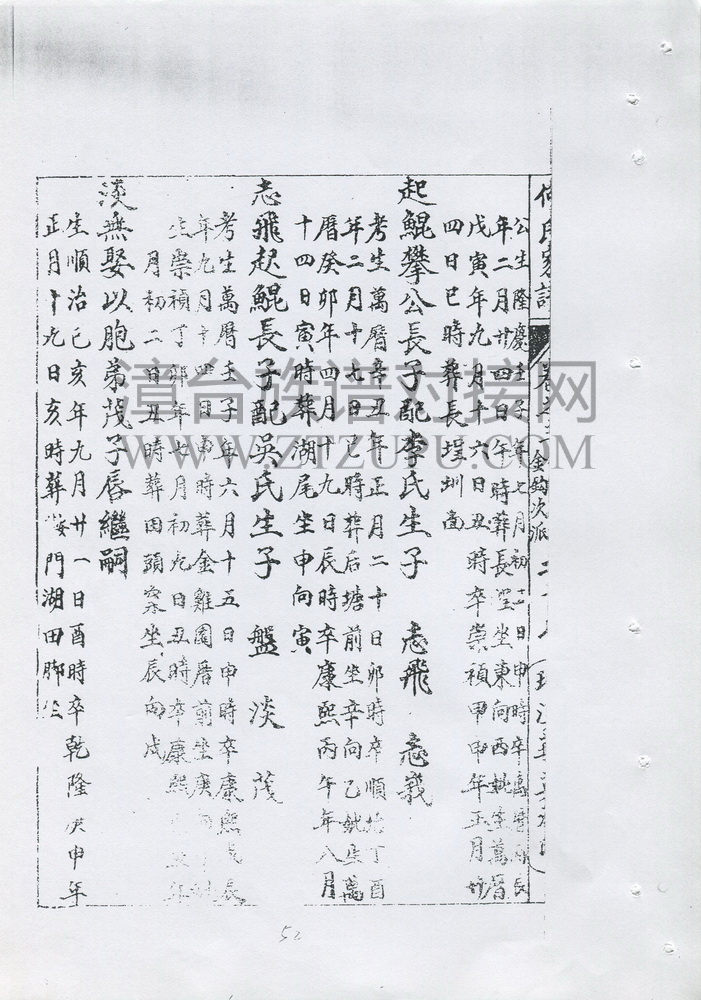 何氏家譜 卷 金鈎次派
公生隆慶壬子年七月初 日申時卒萬曆 辰
年二月廿四日午時葬長埕坐東向西妣生萬曆
戊寅年九月十六日丑時卒崇禎甲申年正月
四日巳時葬長埕圳
起鯤攀公長子配李氏生子 志飛 志
考生萬曆辛丑年正月二十日卯時卒順治丁酉
年二月十七日 時葬后塘前坐辛向乙妣生萬
曆癸卯年四月十九日辰時卒康熙丙午年八月
十四日寅時葬湖尾坐申向寅
志飛起鯤長子配吳氏生子 盤 淡 茂
考生萬曆壬子年六月十五日申時卒康熙戊辰
年九月十四日申時葬金雞園厝前坐庚
生崇禎丁卯年七月初九日丑時卒康熙 年
月初二日丑時葬田頭 坐辰向戌
淡無娶以胞弟茂子唇繼嗣
生順治己亥年九月廿一日酉時卒乾隆庚申年
正月十九日亥時葬 門湖田脚
漳台族谱对接网
WWW.ZTZUPU.COM
52